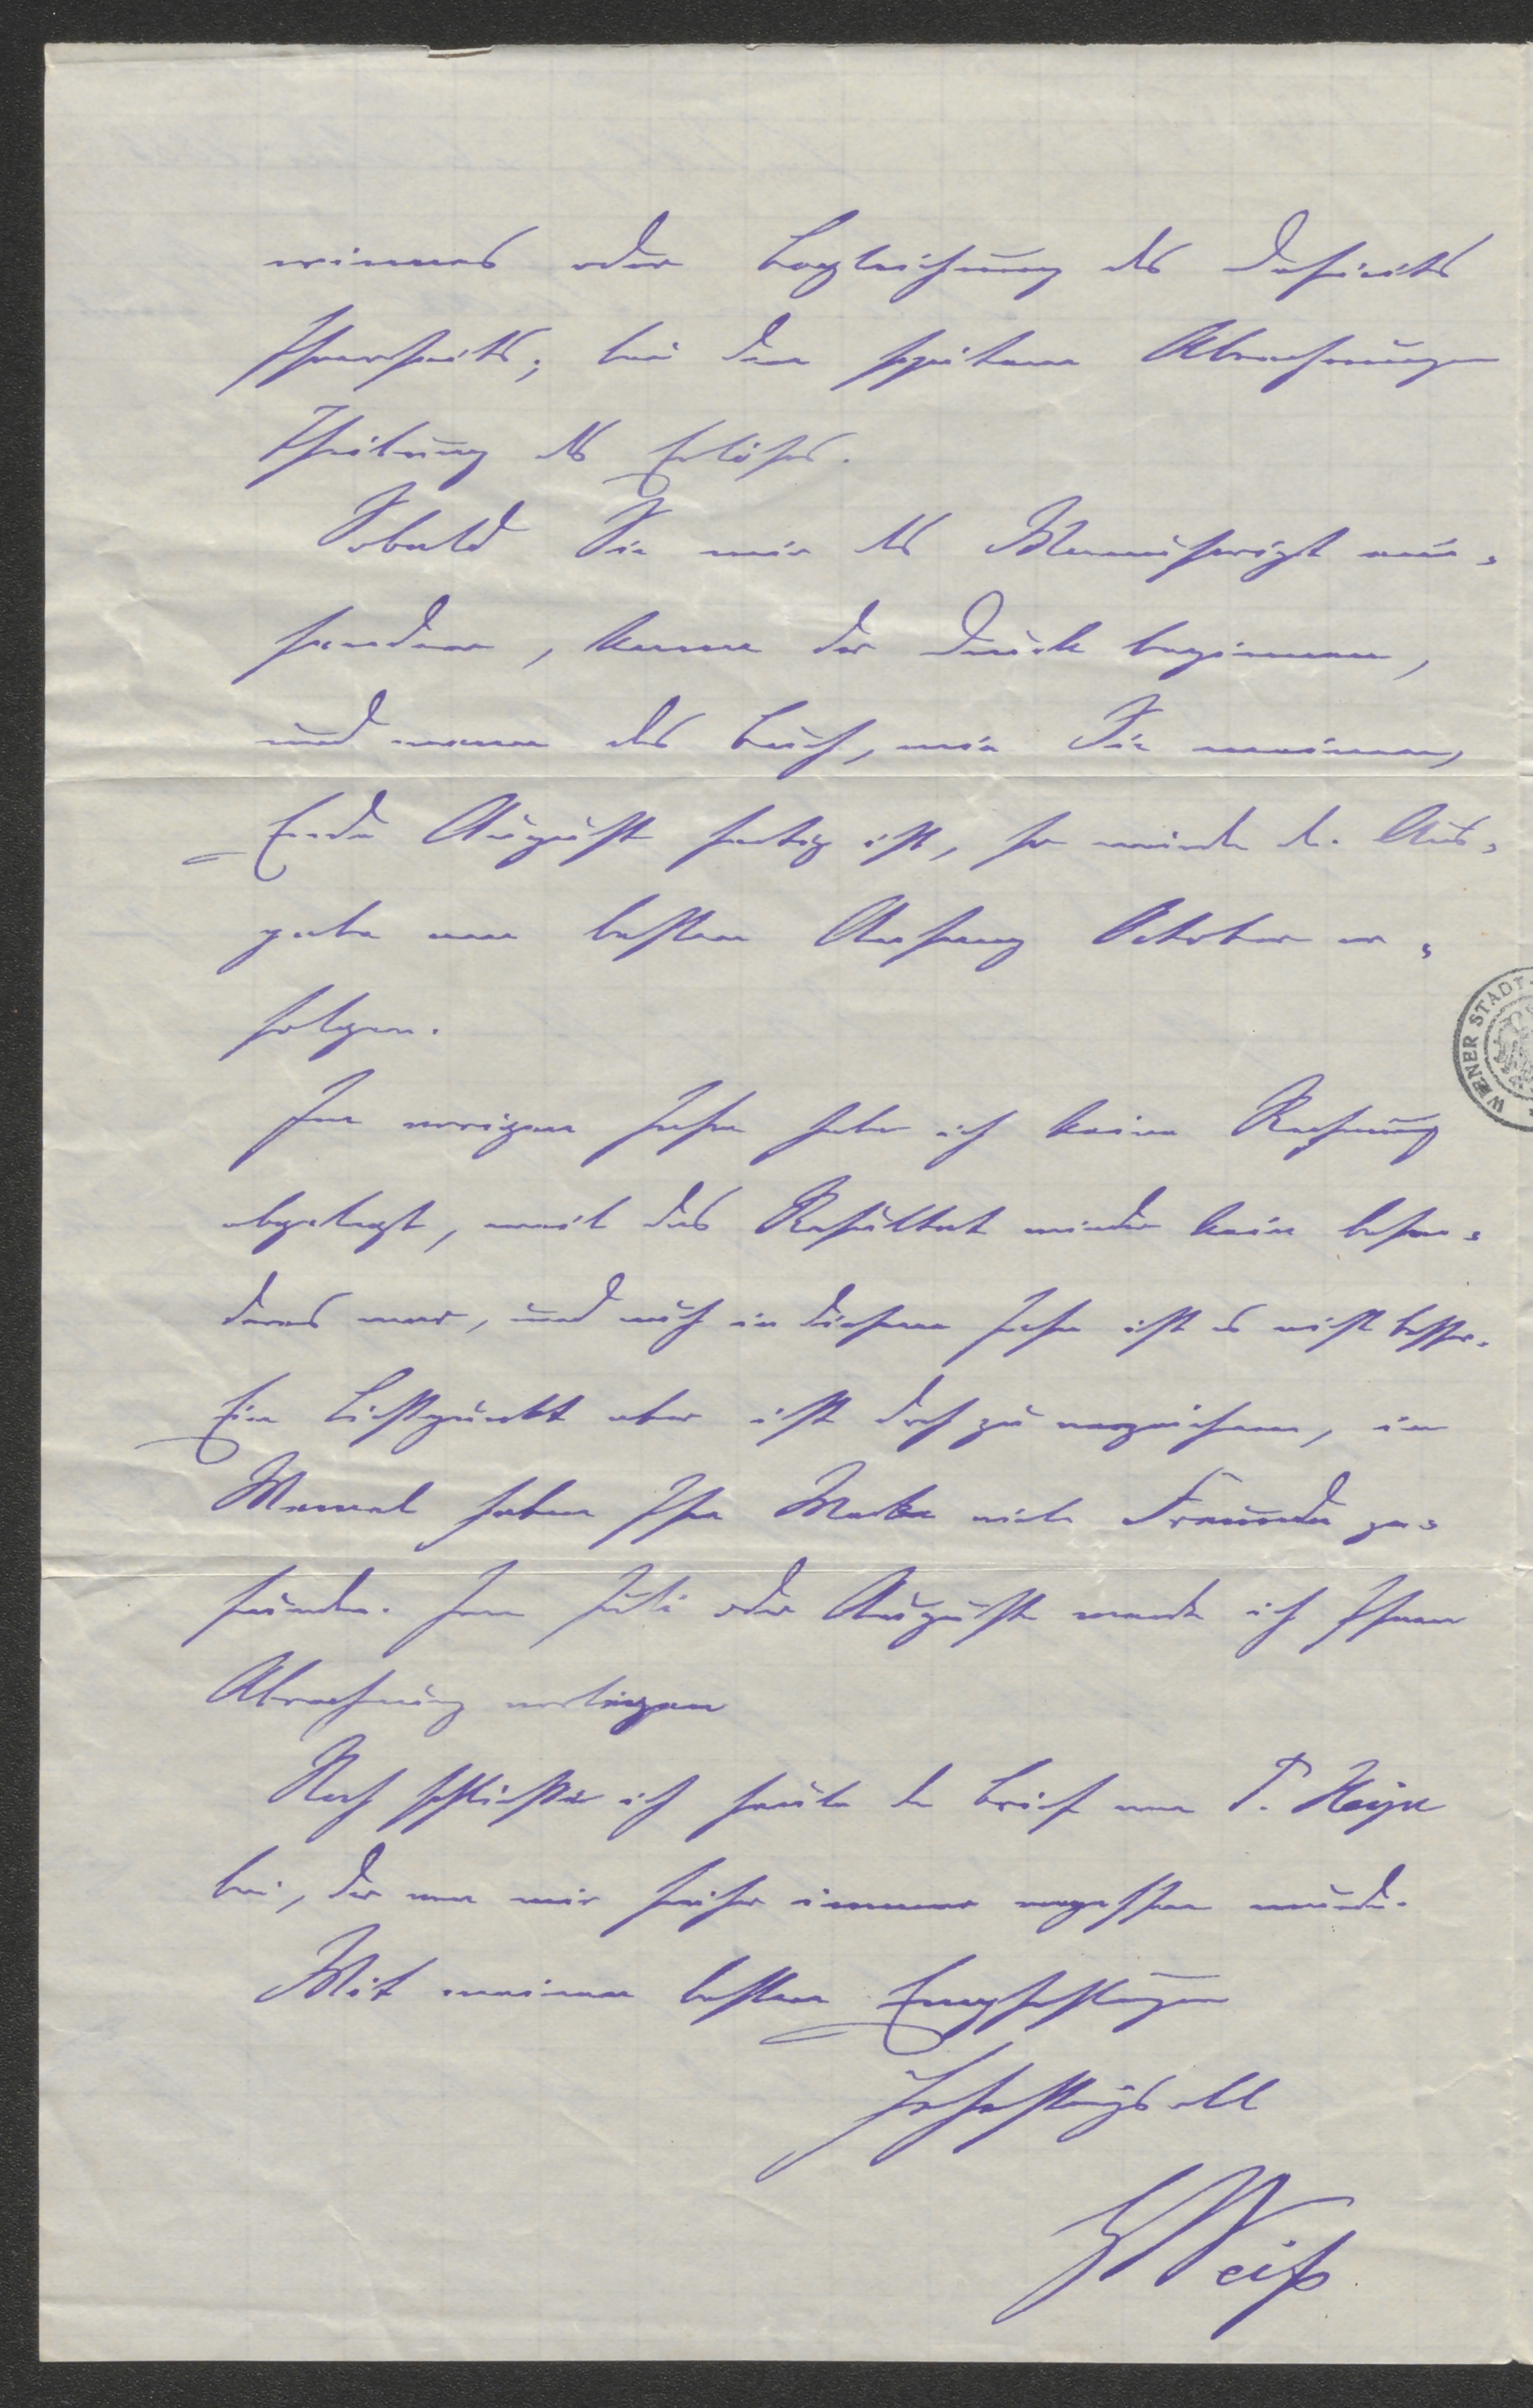 winnes oder Begleichung des Deficits
Ihrerseits; bei den spätern Abrechnungen
Theilung des Erlöses.
Sobald Sie mir das Manuscript ein-
senden, kann der Druck beginnen,
und wenn das Buch, wie Sie meinen,
Ende August fertig ist, so würde d. Aus-
gabe am besten Anfang October er-
folgen.
Im vorigen Jahre habe ich keine Rechnung
abgelegt, weil das Resultat wieder kein beson-
deres war, und auch in diesem Jahre ist es nicht besser.
Ein Lichtpunkt aber ist doch zu verzeichnen, in
Memel haben Ihre Werke viele Freunde ge-
funden. Im Juli oder August werde ich Ihnen
Abrechnung vorlegen
Noch schließe ich heute den Brief von P. Heyse
bei, der von mir früher immer vergessen wurde.
Mit meinen besten Empfehlungen
Hochachtungsvoll
Weiß
WIENER STADT-